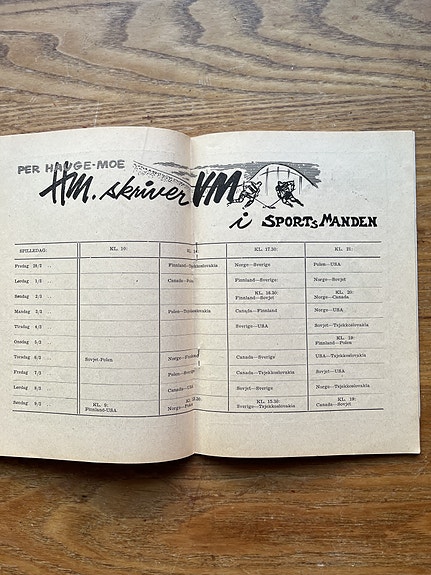 PER HAUGE-MOE
HM. skriver VM
i SPORTSMANDEN
SPILLEDAG: KL. 10: KL. 17.30: KL. 21:
Fredag 28/2 .. Finnland—Tsjekkoslovakia Norge—Sverige Polen—USA
Lørdag 1/3 .. Canada—Polen Finnland—Sverige Norge—Sovjet
KL. 16.30: KL. 20:
Søndag 2/3 .. Finnland—Sovjet Norge—Canada
Mandag 3/3 .. Polen—Tsjekkoslovakia Canada—Finnland Norge—USA
Tirsdag 4/3 .. Sverige—USA Sovjet—Tsjekkoslovakia
KL. 19:
Onsdag 5/3 .. Finnland—Polen
Torsdag 6/3 .. Sovjet-Polen Norge—Finnland Canada—Sverige USA—Tsjekkoslovakia
Fredag 7/3 .. Polen—Sverige Canada—Tsjekkoslovakia Sovjet—USA
Lørdag 8/3 .. Canada—USA Sovjet—Sverige Norge—Tsjekkoslovakia
KL. 9: KL. 15.30: KL. 18:
Søndag 9/3 .. Finnland-USA Norge—Polen Sverige—Tsjekkoslovakia Canada—Sovjet